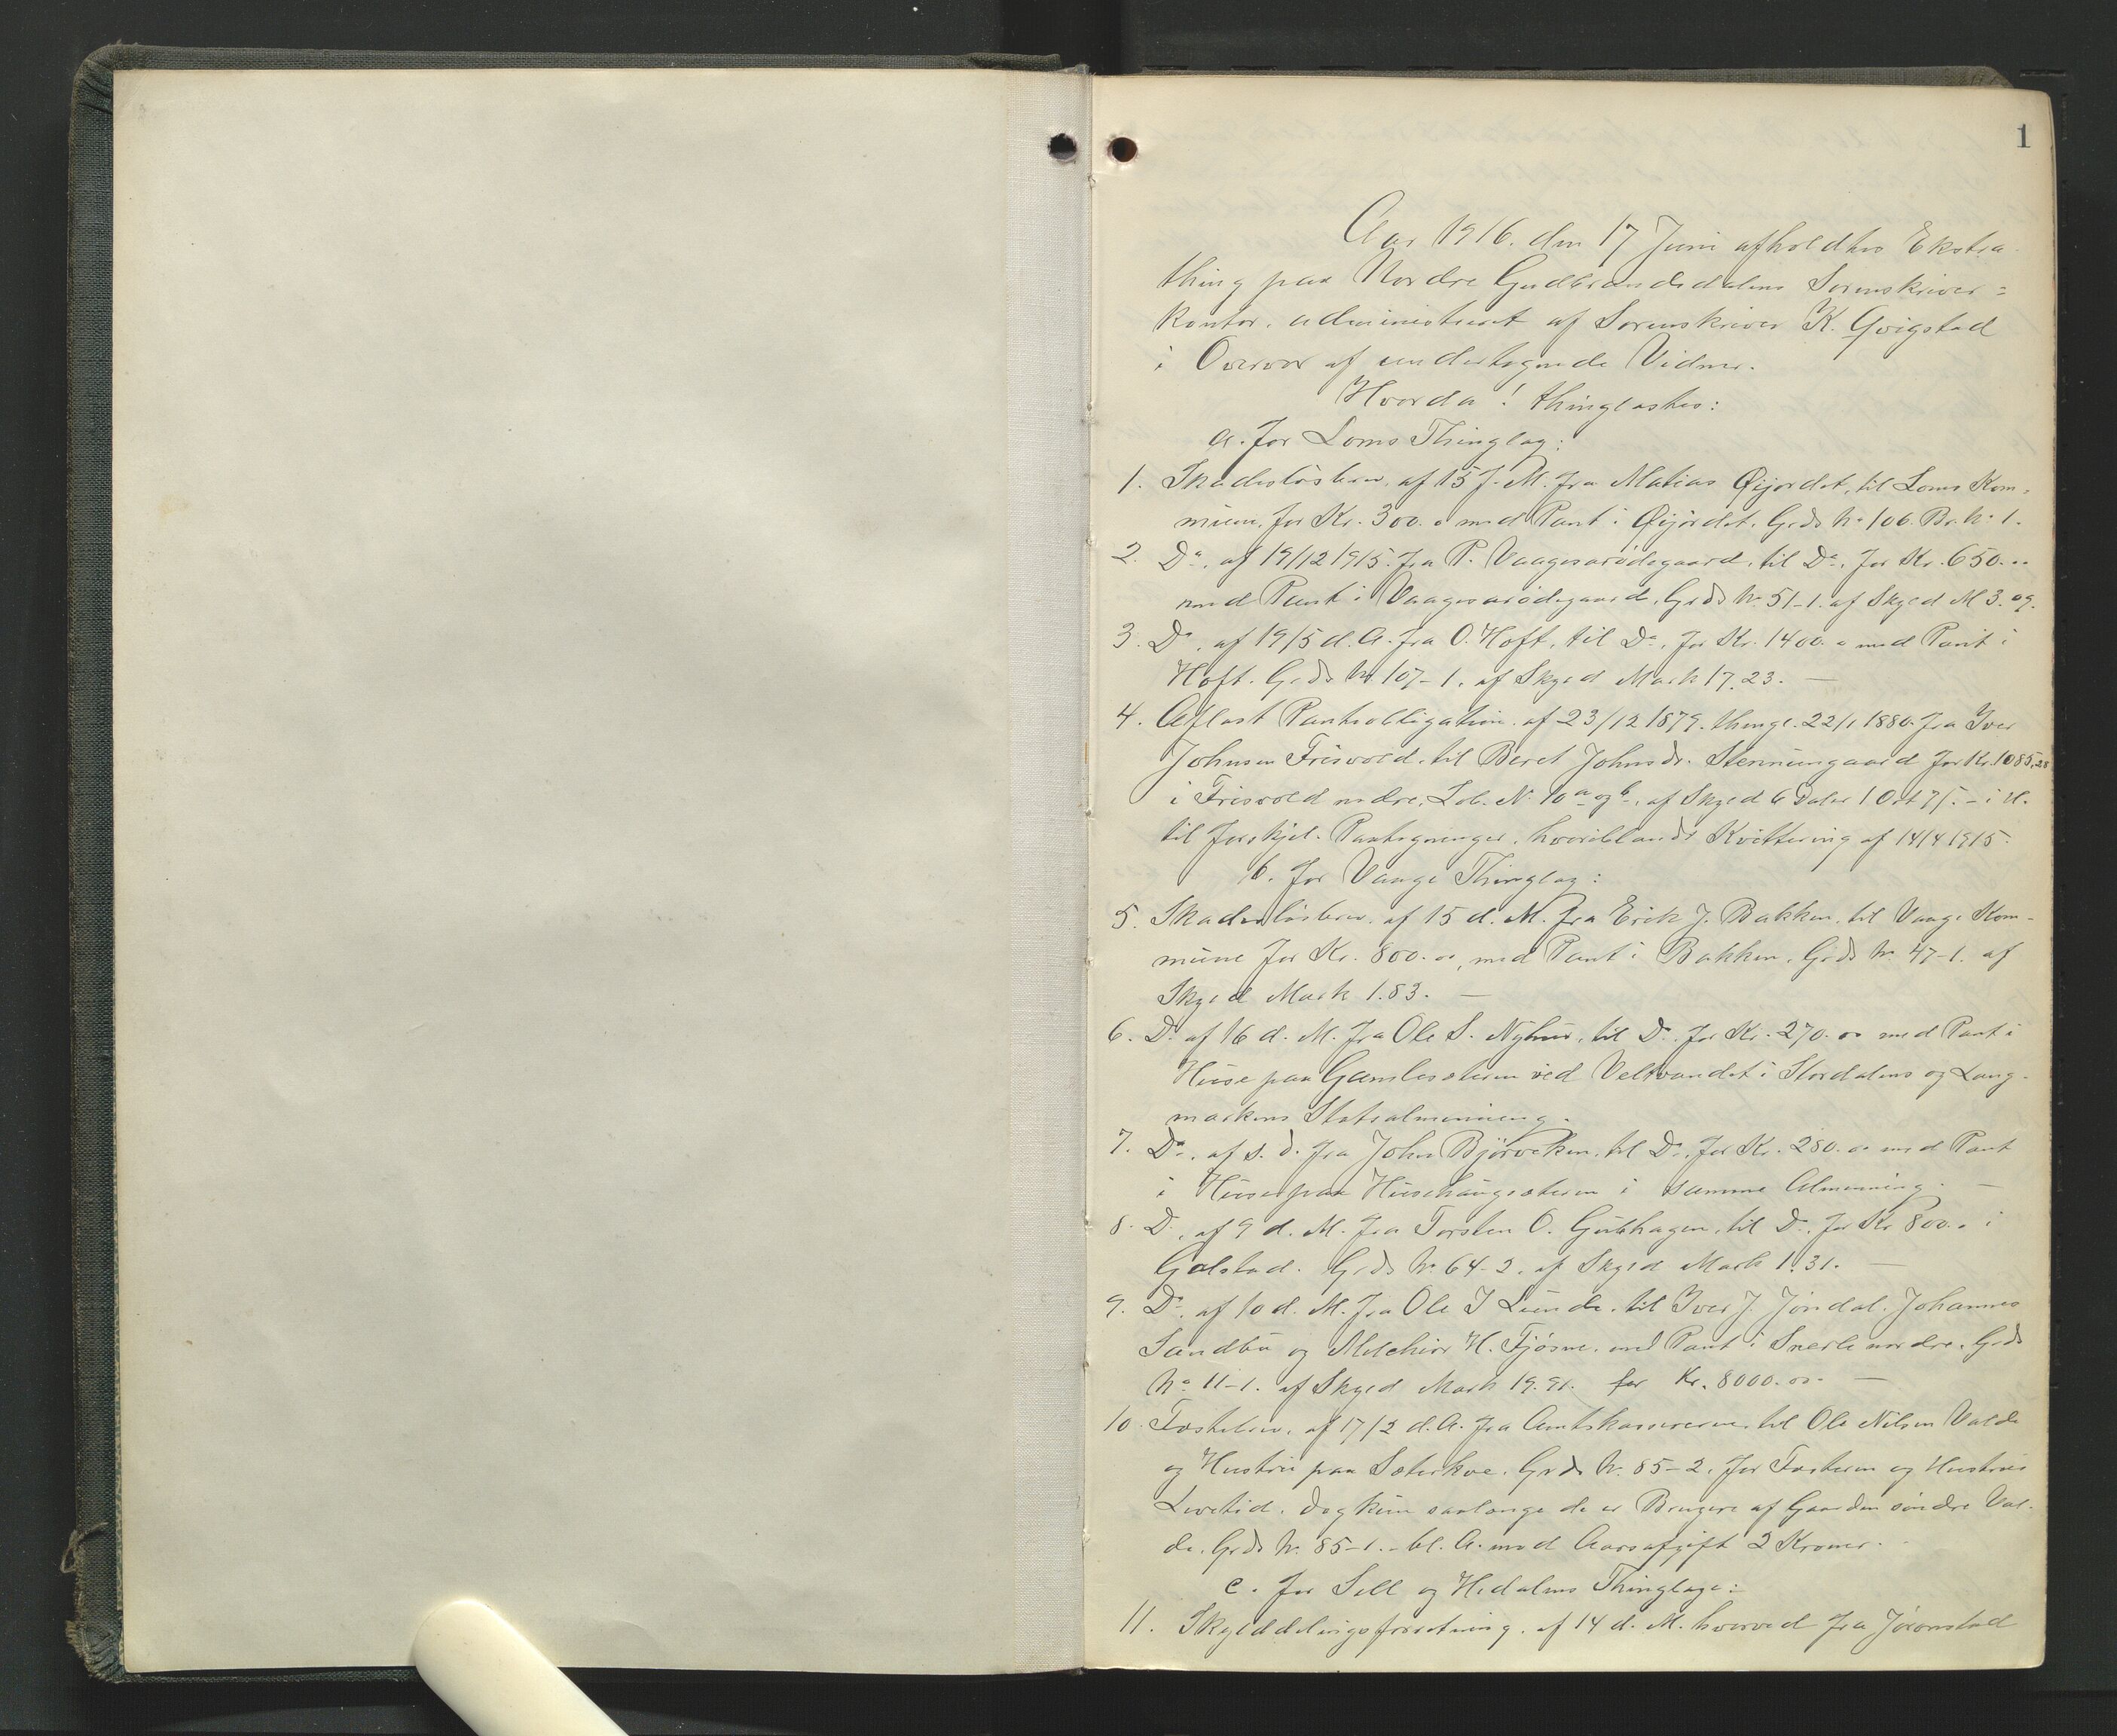 1
Aar 1916. den 17 Juni afholdtes Ekstra-
thing paa Nordre Gudbrandsdalens Sorenskriver=
kontor, administreret af Sorenskriver K. Qvigstad
i Overvær af undertegnede Vidner.
Hvorda! thinglæstes:
a. for Loms Thinglag:
1. Skadesløsbrev, af 15 f. M. fra Matias Øijordet, til Loms Kom-
mune, for Kr. 300.00 med Pant i Øijordet, Grds No 106. Br. No 1.
2. Do. af 19/12 1915. fra P. Vaagesarødegaard, til Do. for Kr. 650.00
med Pant i Vaagesarødegaard, Grds No 51-1. af Skyld M 3.09.
3. Do. af 19/5 d. A. fra O. Hoft, til Do. for Kr. 1400.00 med Pant i
Hoft. Grds No 107-1. af Skyld Mark 17.23. —
4. Aflæst Pantobligation af 23/12 1879. thingl. 22/1 1880. fra Iver
Johnsen Frisvold, til Beret Johnsdr. Stenningaard for Kr. 1085,28
i Frisvold nedre, Lob. No 10 a og b. af Skyld 6 Daler 1 Ort 7 s. - i H.
til forskjel. Pantegninger, hvoriblandt Kvittering af 14/4 1915.
b. for Vaage Thinglag:
5. Skadesløsbrev, af 15 d. M. fra Erik J. Bakken, til Vaage Kom-
mune for Kr. 800.00, med Pant i Bakken, Grds No 47-1. af
Skyld Mark 1.83. —
6. Do af 16 d. M. fra Ole S. Nyhus, til Do. for Kr. 270.00 med Pant i
Huse paa Gamlesæteren ved Veltvandet i Stordalens og Lang-
markens Statsalmenning.
7. Do. af s. d. fra John Bjørveken, til Do. for Kr. 280.00 med Pant
i Huse paa Husehaugsæteren i samme Almenning. —
8. Do. af 9 d. M. fra Torsten O. Gubhagen, til Do. for Kr 800.00 i
Galstad. Grds No 64-2. af Skyld Mark 1.31. —
9. Do. af 10 d. M. fra Ole I Lunde, til Iver J. Jøndal, Johannes
Sandbu og Melchior H. Fjøsne, med Pant i Snerle nordre, Grds
No 11-1. af Skyld Mark 19.91. for Kr. 8000.00. —
10. Fæstebrev, af 17/2 d. A. fra Amtskassereren, til Ole Nilsen Valde
og Hustru paa Sæterkve, Grds No 85-2. for Fæsteren og Hustrus
Levetid, dog kun saalænge de er Brugere af Gaarden søndre Val-
de, Grds No 85-1. - bl. A. mod Aarsafgift 2 Kroner.
c. for Sell og Hedalens Thinglage:
11. Skylddelingsforretning, af 14 d. M. hvorved fra Jøronstad